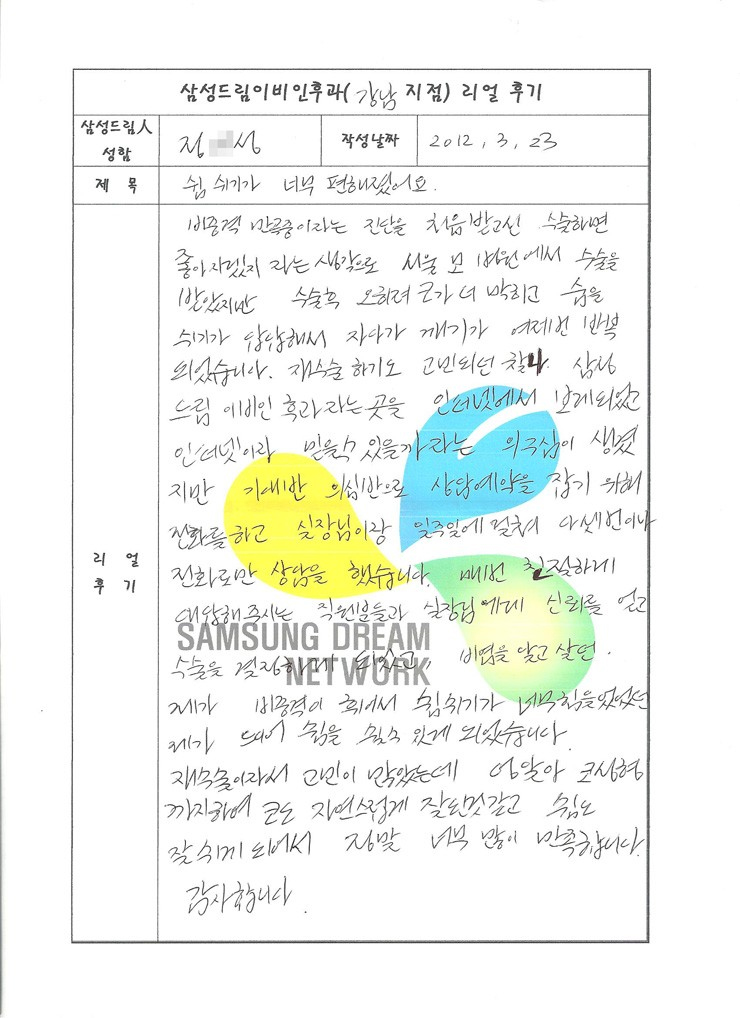 삼성드림이비인후과(강남 지점) 리얼 후기
삼성드림人
성함
정 성
작성날짜
2012, 3, 23
제 목
쉼 쉬기가 너무 편해졌어요.
리 얼
후 기
비중격 만곡증이라는 진단을 처음받고선 수술하면
좋아지겠지 라는 생각으로 서울 모 병원에서 수술을
받았지만 수술후 오히려 코가 더 막히고 숨을
쉬기가 답답해서 자다가 깨기가 여러번 반복
되었습니다. 재수술 하기로 고민되던 찰나 삼성
드림 이비인 후과 라는 곳을 인터넷에서 보게되었고
인터넷이라 믿을수 있을까 라는 의구심이 생겼
지만 기대반 의심반으로 상담예약을 잡기 위해
전화를 하고 실장님이랑 일주일에 걸쳐 다섯번이나
전화로만 상담을 했습니다. 매번 친절하게
대답해 주시는 직원분들과 실장님에게 신뢰를 얻고
수술을 결정하게 되었고, 비염을 앓고 살던.
제가 비중격이 휘어서 쉼쉬기가 너무힘들었었던
제가 드디어 쉼을 쉴수 있게 되었습니다.
재수술이라서 고민이 많았는데 코성형
까지하여 코도 자연스럽게 잘된것같고 쉼도
잘 쉬게 되어서 정말 너무 많이 만족합니다.
감사합니다.
SAMSUNG DREAM
NETWORK